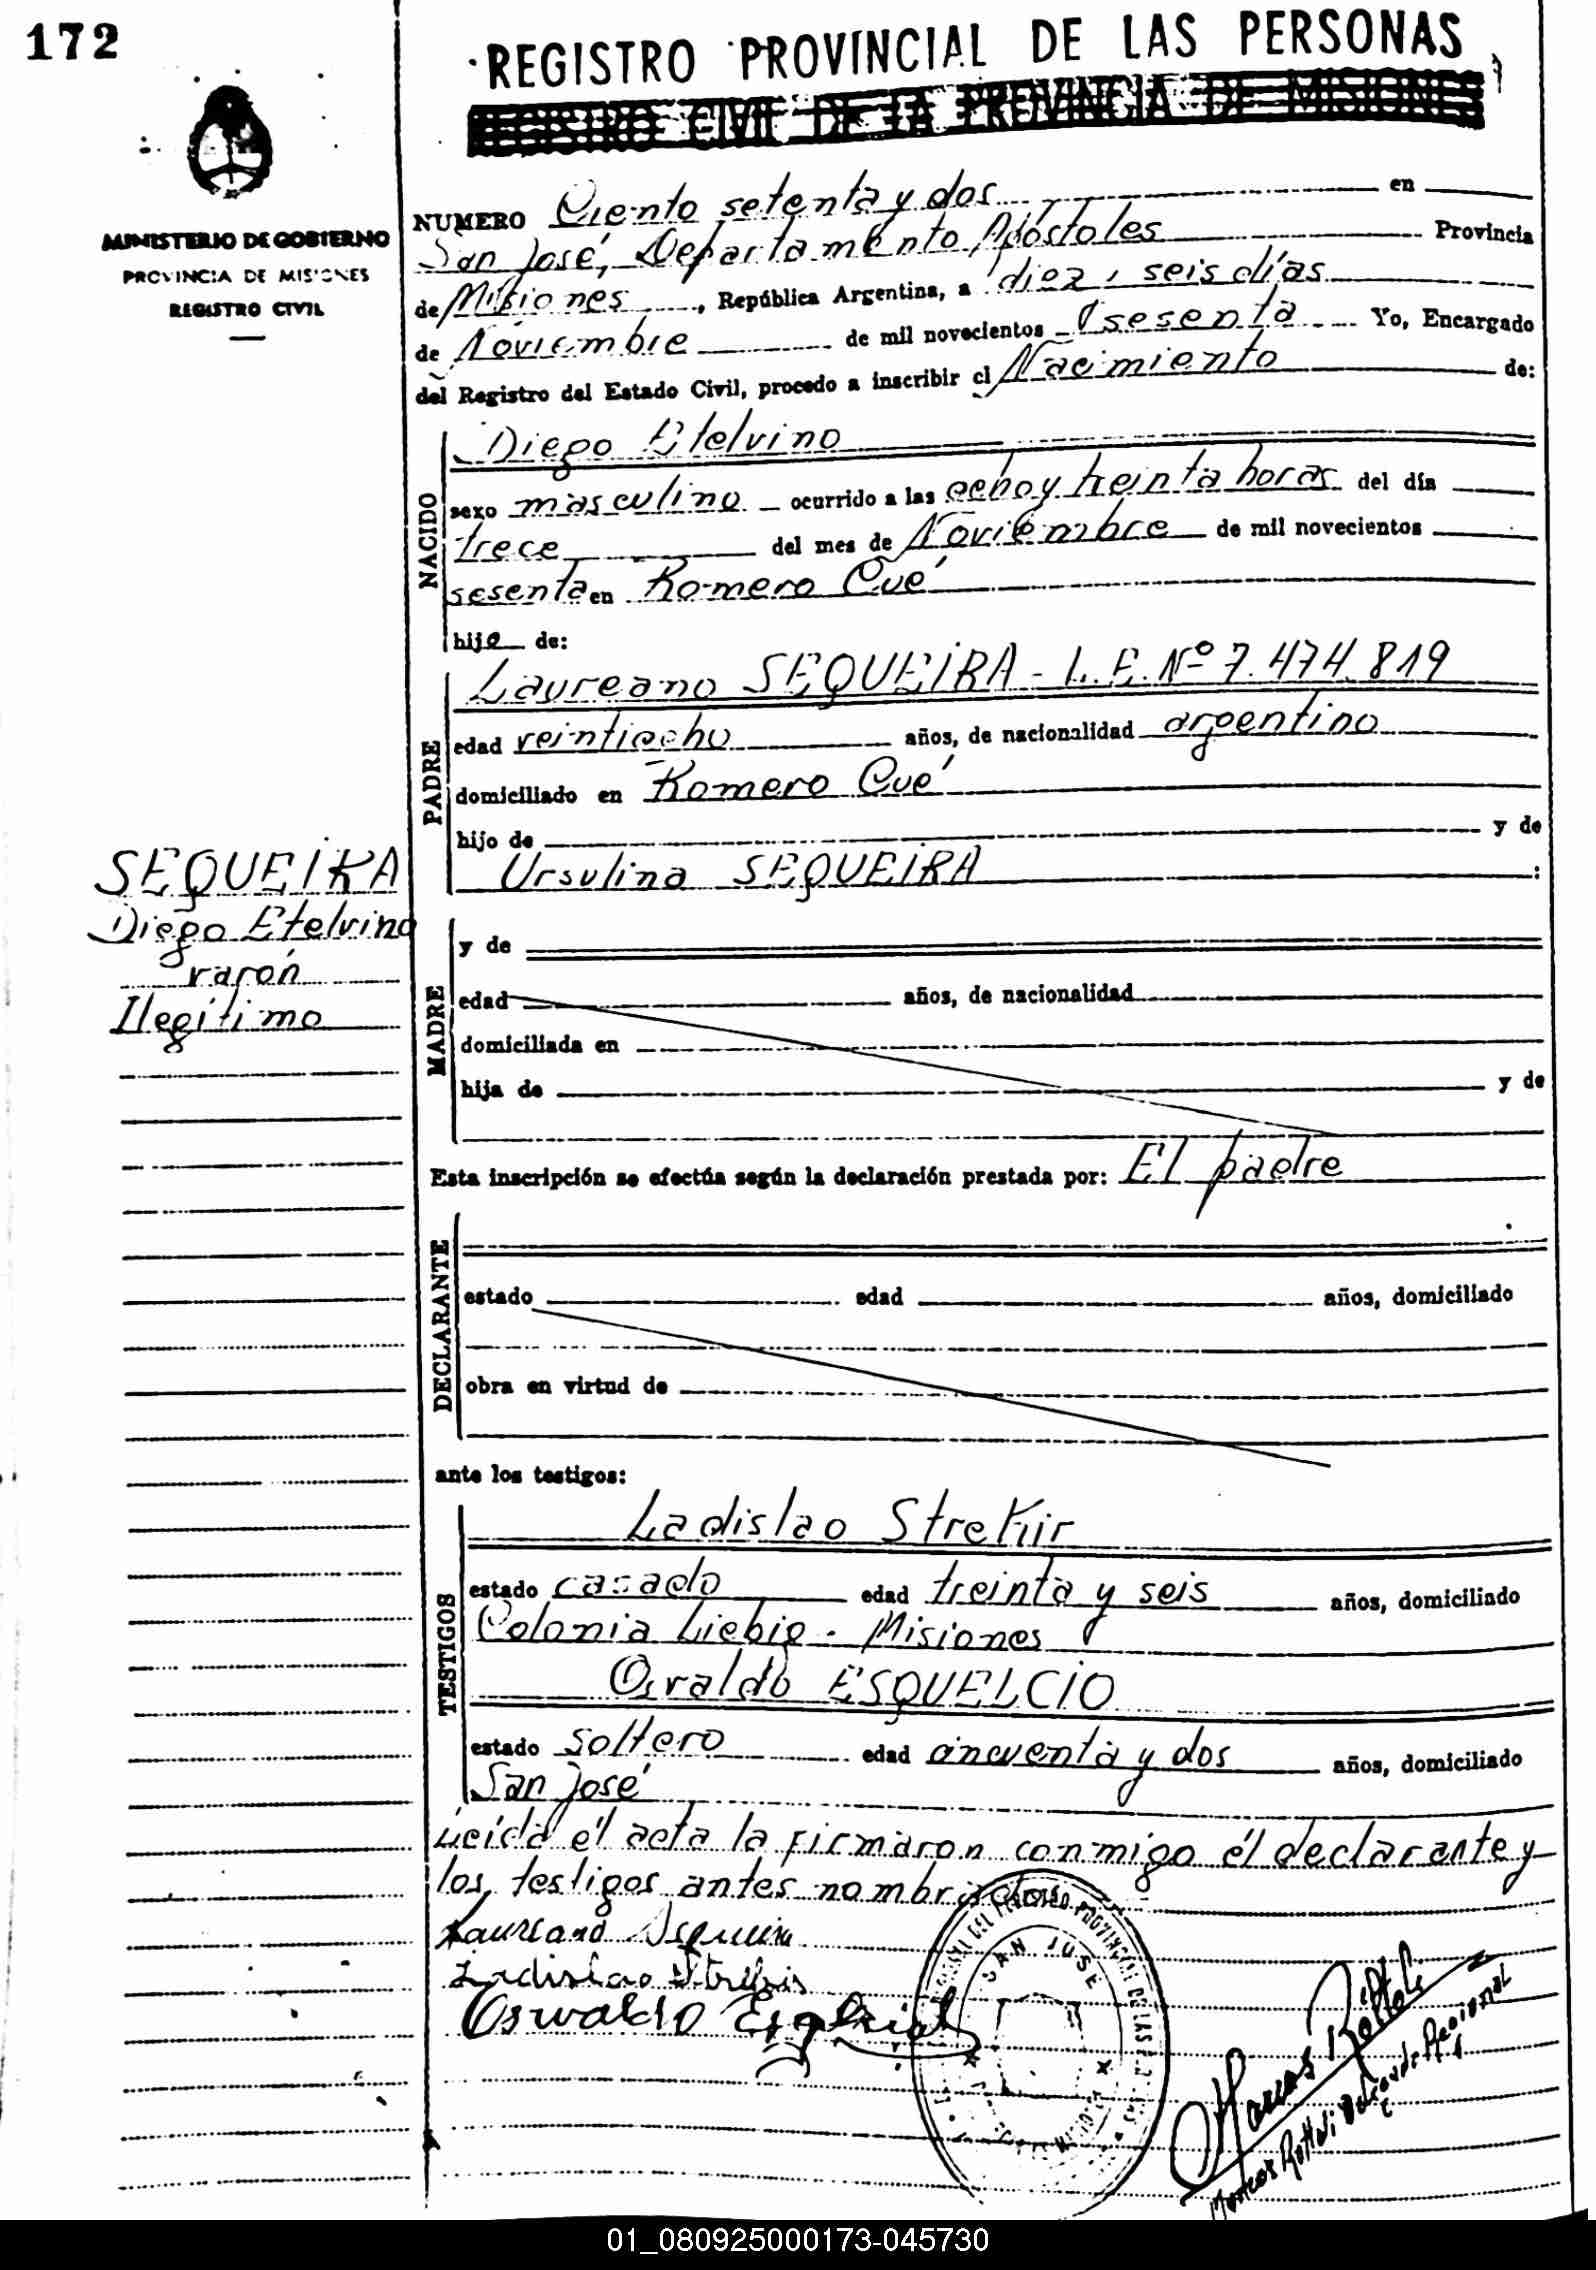 172
REGISTRO PROVINCIAL DE LAS PERSONAS
REGISTRO CIVIL DE LA PROVINCIA DE MISIONES
MINISTERIO DE GOBIERNO
PROVINCIA DE MISIONES
REGISTRO CIVIL
NUMERO Ciento setenta y dos en
San José, Departamento Apóstoles Provincia
de Misiones, República Argentina, a diez y seis días
de Noviembre de mil novecientos sesenta Yo, Encargado
del Registro del Estado Civil, procedo a inscribir el Nacimiento de:
NACIDO
Diego Etelvino
sexo masculino ocurrido a las ocho y treinta horas del día
trece del mes de Noviembre de mil novecientos
sesenta en Romero Cué
hijo de:
PADRE
Laureano SEQUEIRA - L.E. Nº 7.474.819
edad veintiocho años, de nacionalidad argentino
domiciliado en Romero Cué
hijo de y de
Ursulina SEQUEIRA :
SEQUEIRA
Diego Etelvino
varón
Ilegítimo
MADRE
y de
edad años, de nacionalidad
domiciliada en
hija de y de
Esta inscripción se efectúa según la declaración prestada por: El padre
DECLARANTE
estado edad años, domiciliado
obra en virtud de
ante los testigos:
TESTIGOS
Ladislao StreKir
estado casado edad treinta y seis años, domiciliado
Colonia Liebig - Misiones
Osvaldo ESQUELCIO
estado soltero edad cincuenta y dos años, domiciliado
San José
Leída él acta la firmaron conmigo él declarante y
los testigos antes nombrados
Laureano Sequeira
Ladislao
Oswaldo
SAN JOSE
Marcos Rottoli
01_080925000173-045730